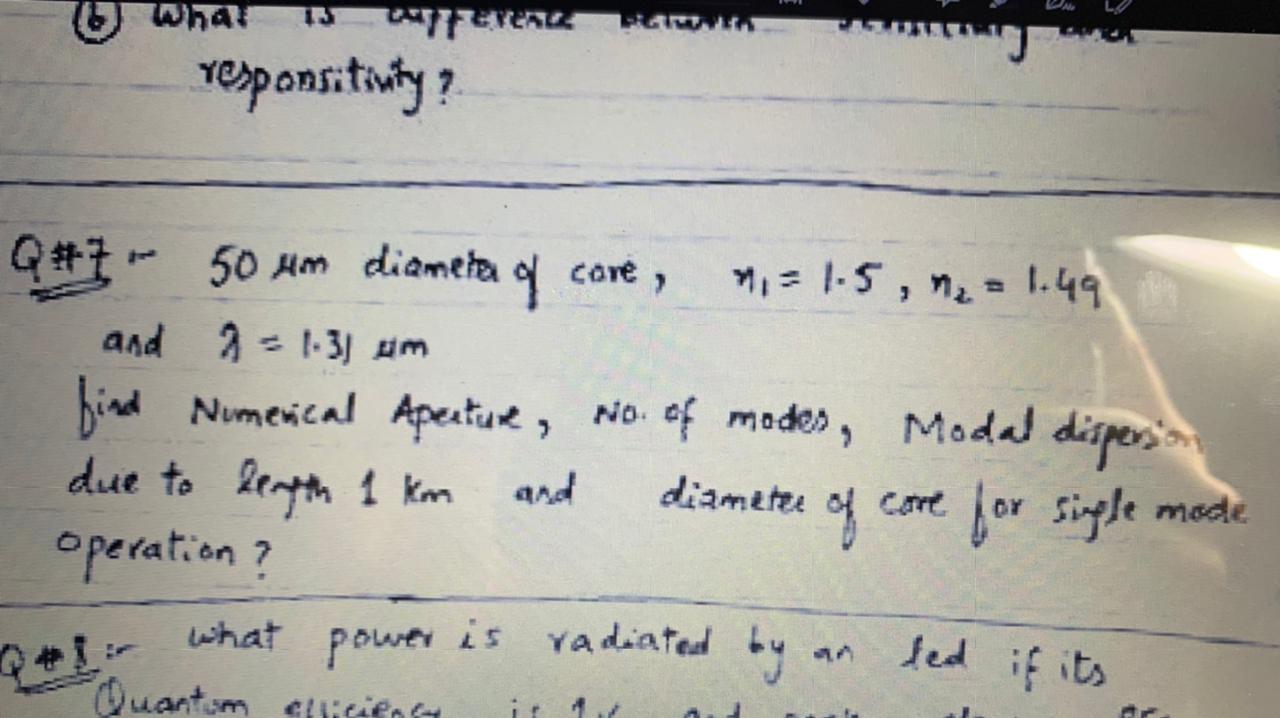 (b) What is difference between and
responsitivity?
Q#7:- 50 μm diameter of core, n₁ = 1.5, n₂ = 1.49
and λ = 1.31 μm
find Numerical Aperture, No. of modes, Modal dispersion
due to length 1 Km and diameter of core for single mode
operation?
what power is radiated by an led if its
Quantum efficiency is 1% and